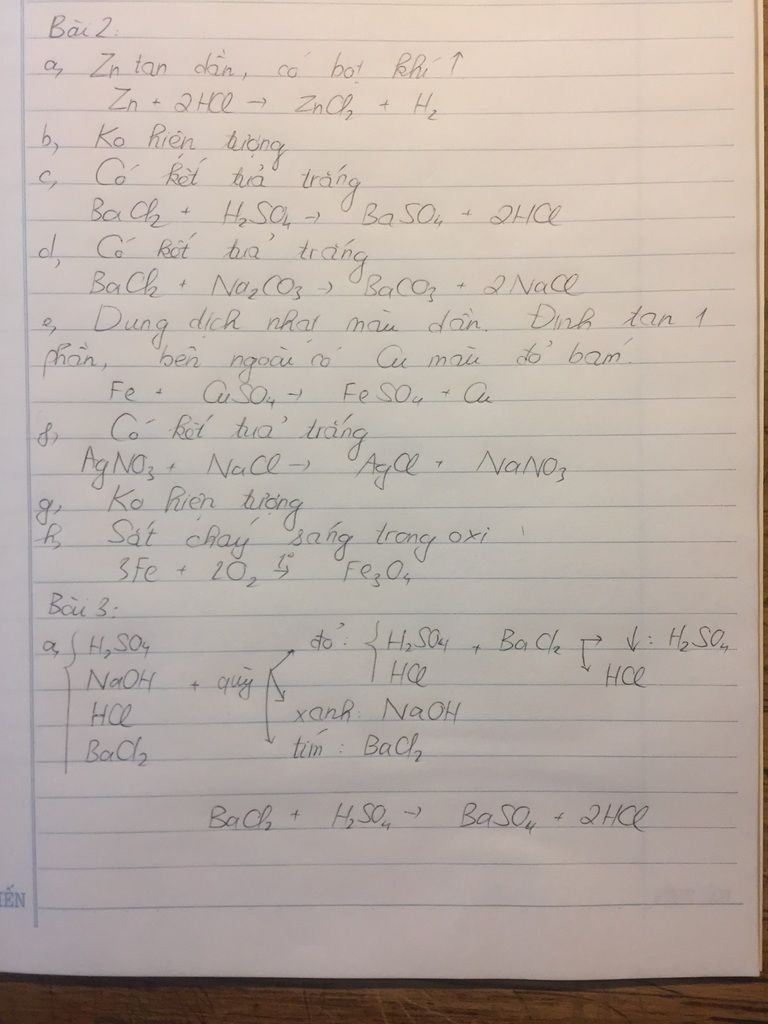 Bài 2:
a, Zn tan dần, có bọt khí ↑
Zn + 2HCl → ZnCl₂ + H₂
b, Ko hiện tượng
c, Có kết tủa trắng
BaCl₂ + H₂SO₄ → BaSO₄ + 2HCl
d, Có kết tủa trắng
BaCl₂ + Na₂CO₃ → BaCO₃ + 2NaCl
e, Dung dịch nhạt màu dần. Đinh tan 1
phần, bên ngoài có Cu màu đỏ bám.
Fe + CuSO₄ → FeSO₄ + Cu
f, Có kết tủa trắng
AgNO₃ + NaCl → AgCl + NaNO₃
g, Ko hiện tượng
h, Sắt cháy sáng trong oxi
3Fe + 2O₂ t°→ Fe₃O₄
Bài 3:
a, { H₂SO₄ đỏ: { H₂SO₄ + BaCl₂ → ↓: H₂SO₄
NaOH + quỳ HCl HCl
HCl xanh: NaOH
BaCl₂ tím: BaCl₂
BaCl₂ + H₂SO₄ → BaSO₄ + 2HCl
IẾN